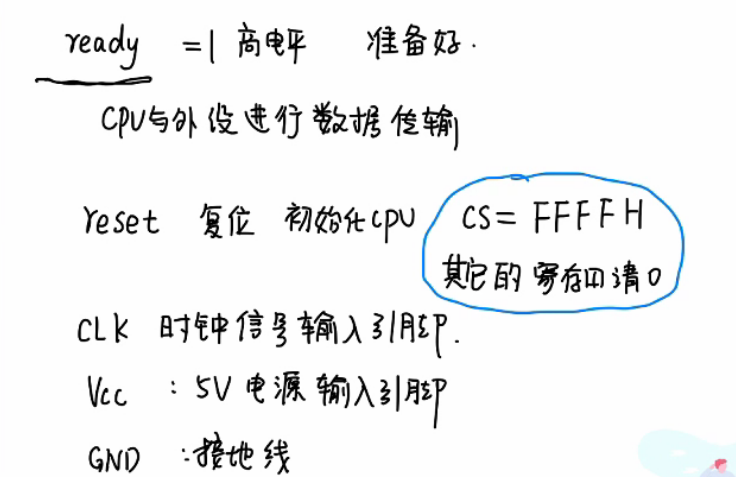 ready =1 高电平 准备好.
CPU与外设进行数据传输
reset 复位 初始化CPU
CS= FFFFH
其它的寄存口清0
CLK 时钟信号输入引脚.
Vcc : 5V 电源输入引脚
GND :接地线